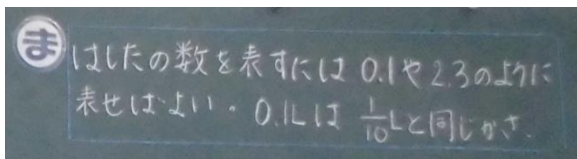 ま
はしたの数を表すには 0.1や2.3のように
表せばよい。0.1Lは 1/10Lと同じかさ.